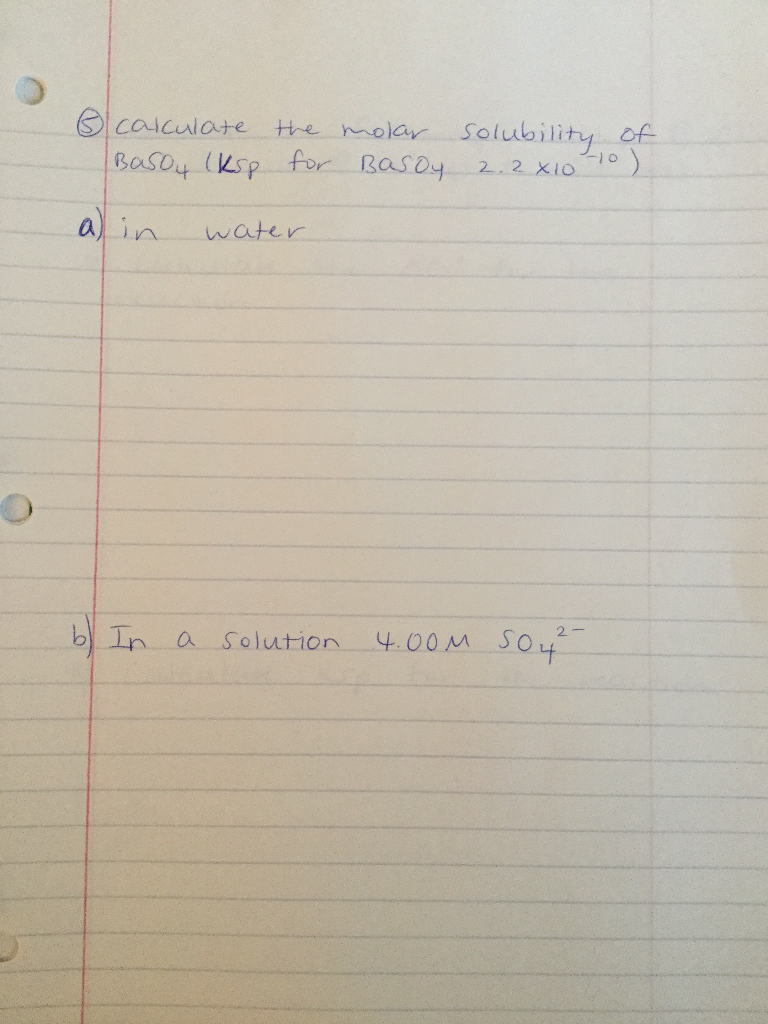 ⑤ calculate the molar solubility of
BaSO₄ (Ksp for BaSO₄ 2.2 x10⁻¹⁰)
a) in water
b) In a solution 4.00M SO₄²⁻